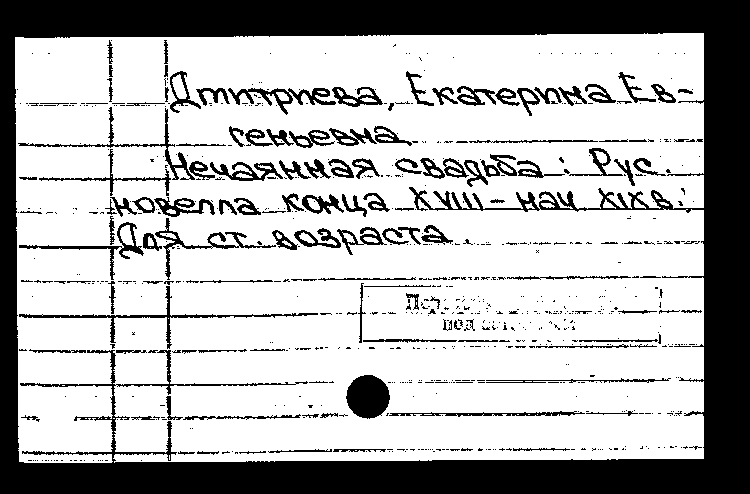 Дмитриева, Екатерина Ев-
геньевна.
Нечаянная свадьба : Рус.
новелла конца XVIII - нач XIX в. :
Для ст. возраста.
под